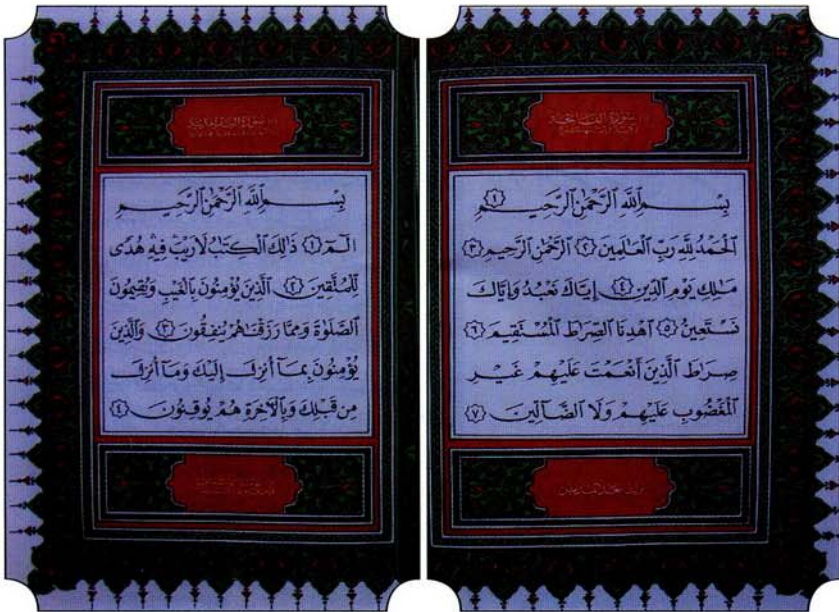 سورة الفاتحة
بِسْمِ اللَّهِ الرَّحْمَٰنِ الرَّحِيمِ ١
الْحَمْدُ لِلَّهِ رَبِّ الْعَالَمِينَ ٢ الرَّحْمَٰنِ الرَّحِيمِ ٣
مَالِكِ يَوْمِ الدِّينِ ٤ إِيَّاكَ نَعْبُدُ وَإِيَّاكَ
نَسْتَعِينُ ٥ اهْدِنَا الصِّرَاطَ الْمُسْتَقِيمَ ٦
صِرَاطَ الَّذِينَ أَنْعَمْتَ عَلَيْهِمْ غَيْرِ
الْمَغْضُوبِ عَلَيْهِمْ وَلَا الضَّالِّينَ ٧
بِسْمِ اللَّهِ الرَّحْمَٰنِ الرَّحِيمِ
الٓمٓ ١ ذَٰلِكَ الْكِتَابُ لَا رَيْبَ فِيهِ هُدًى
لِلْمُتَّقِينَ ٢ الَّذِينَ يُؤْمِنُونَ بِالْغَيْبِ وَيُقِيمُونَ
الصَّلَوٰةَ وَمِمَّا رَزَقْنَاهُمْ يُنْفِقُونَ ٣ وَالَّذِينَ
يُؤْمِنُونَ بِمَآ أُنْزِلَ إِلَيْكَ وَمَآ أُنْزِلَ
مِنْ قَبْلِكَ وَبِالْآخِرَةِ هُمْ يُوقِنُونَ ٤